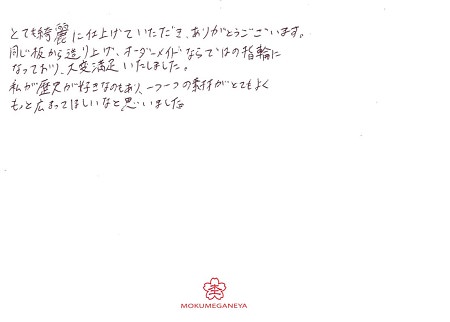 とても綺麗に仕上げていただき、ありがとうございます。
同じ板から造り上げ、オーダーメイドならではの指輪に
なっており、大変満足いたしました。
私が歴史が好きなのもあり、一つ一つの素材がとてもよく
もっと広まってほしいなと思いました。
MOKUMEGANEYA